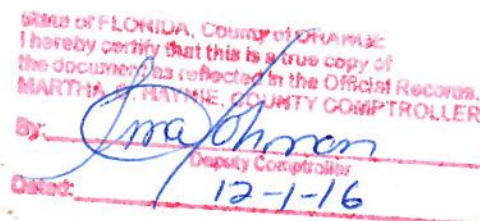 State of FLORIDA, County of ORANGE
I hereby certify that this is a true copy of
the document as reflected in the Official Records.
MARTHA O. HAYNIE, COUNTY COMPTROLLER
By:
Deputy Comptroller
Dated: 12-1-16